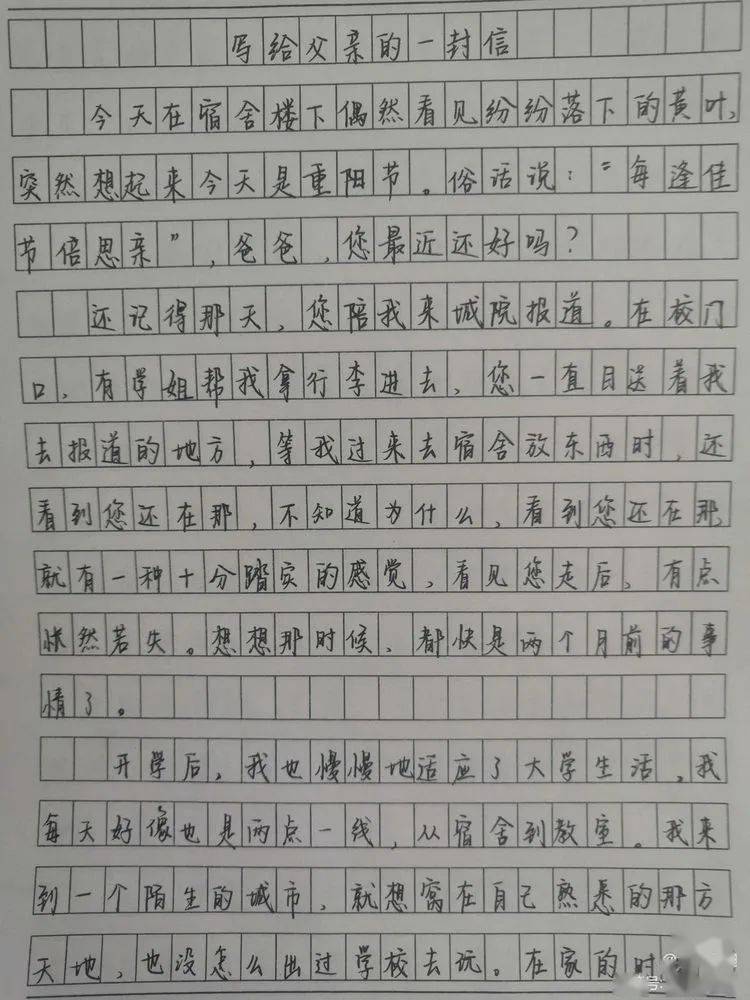 写给父亲的一封信
今天在宿舍楼下偶然看见纷纷落下的黄叶,
突然想起来今天是重阳节。俗话说:“每逢佳
节倍思亲”,爸爸,您最近还好吗?
还记得那天,您陪我来城院报道。在校门
口,有学姐帮我拿行李进去,您一直目送着我
去报道的地方,等我过来去宿舍放东西时,还
看到您还在那,不知道为什么,看到您还在那,
就有一种十分踏实的感觉,看见您走后,有点
怅然若失。想想那时候,都快是两个月前的事
情了。
开学后,我也慢慢地适应了大学生活,我
每天好像也是两点一线,从宿舍到教室。我来
到一个陌生的城市,就想窝在自己熟悉的那方
天地,也没怎么出过学校去玩。在家的时